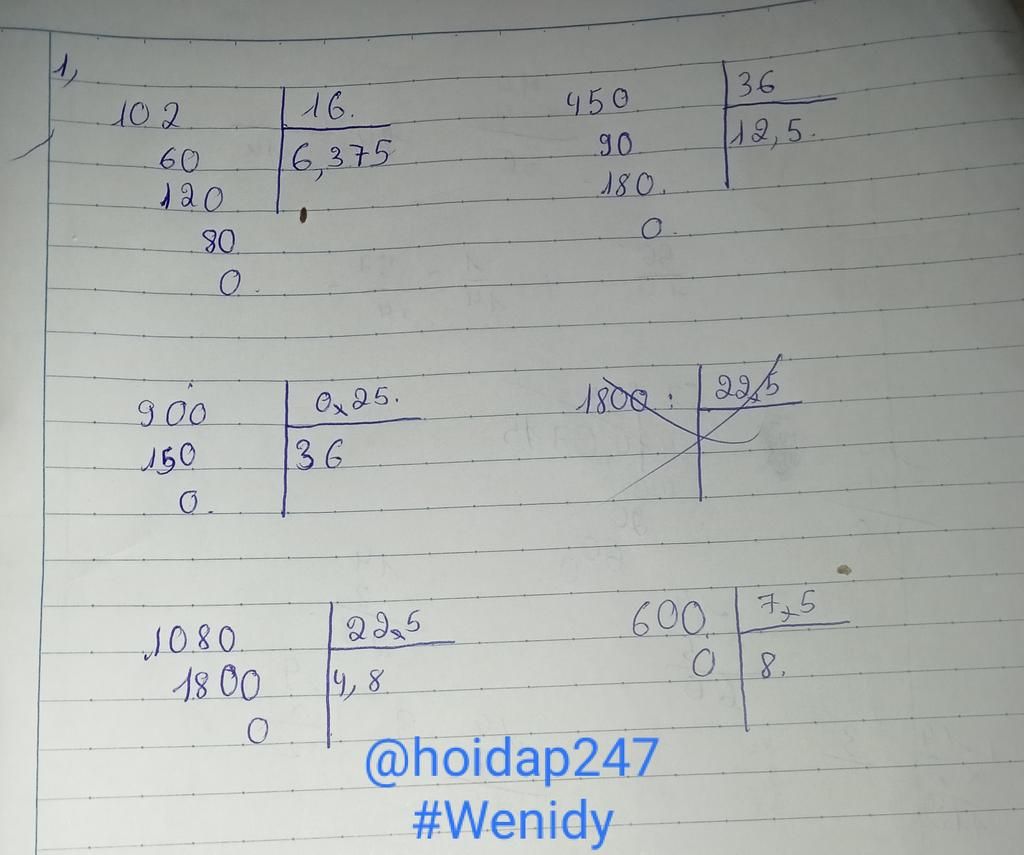 1,
102 16.
60 6,375
120
80
0.
450 36
90 12,5.
180.
0.
900 0,25.
150 36
0.
1800 : 22,5
1080 22,5
1800 4,8
0
600 7,5
0 8.
@hoidap247
#Wenidy